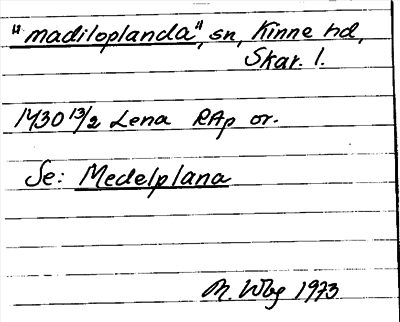 "madiloplanda", sn, Kinne hd,
Skar. l.
1430 13/2 Lena RAp or.
Se: Medelplana
M. Wbg 1973